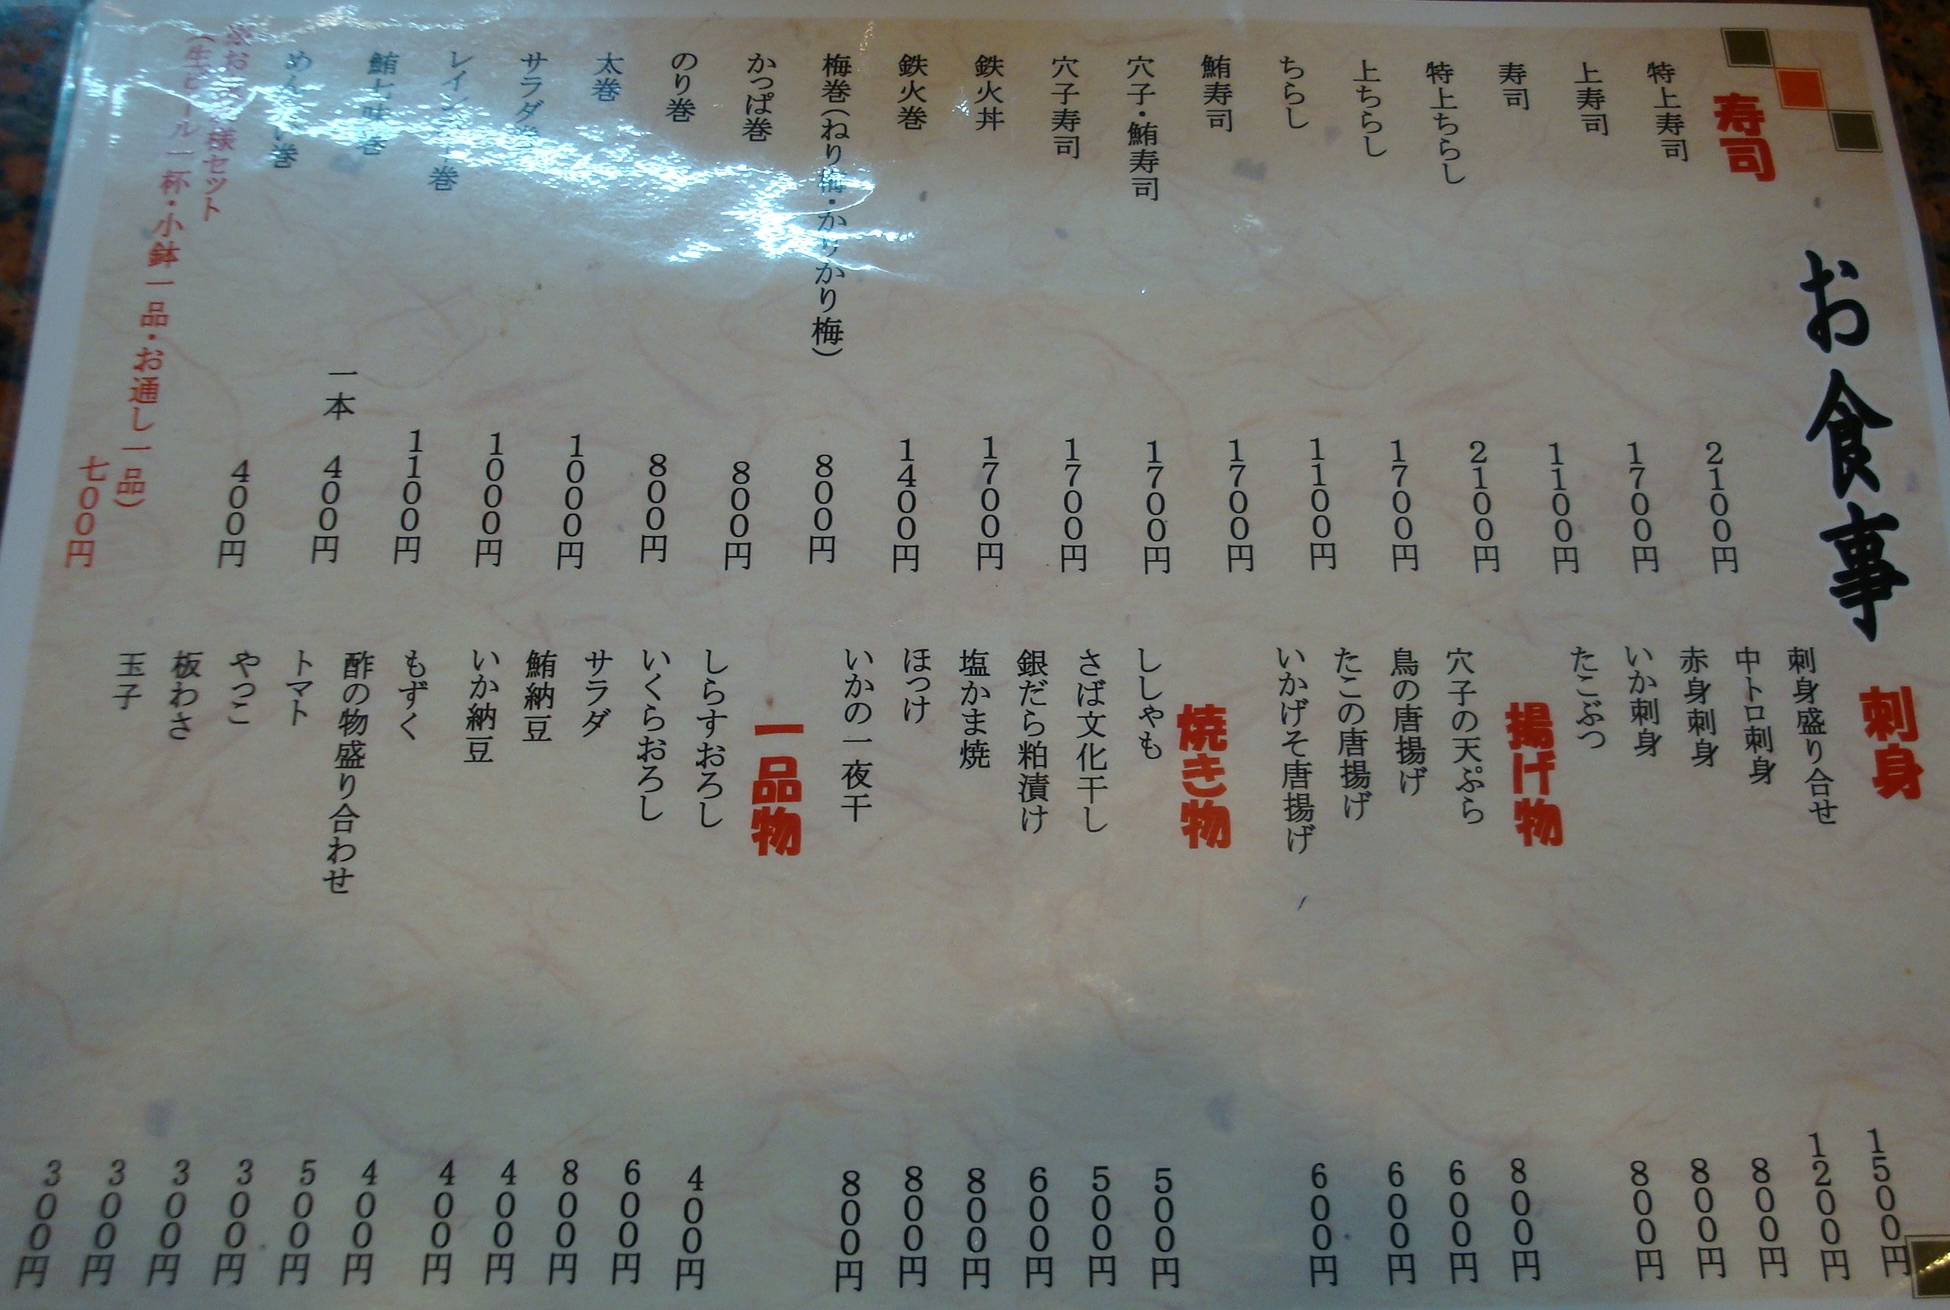 お食事
寿司
特上寿司 2100円
上寿司 1700円
寿司 1100円
特上ちらし 2100円
上ちらし 1700円
ちらし 1100円
鮪寿司 1700円
穴子・鮪寿司 1700円
穴子寿司 1700円
鉄火丼 1700円
鉄火巻 1400円
梅巻(ねり梅・かりかり梅) 800円
かっぱ巻 800円
のり巻 800円
太巻 1000円
サラダ巻 1000円
1100円
鮪七味巻 一本 400円
400円
様セット
(生ビール一杯・小鉢一品・お通し一品)
七00円
刺身
刺身盛り合せ 1500円
中トロ刺身 1200円
赤身刺身 800円
いか刺身 800円
たこぶつ 800円
揚げ物
穴子の天ぷら 800円
鳥の唐揚げ 600円
たこの唐揚げ 600円
いかげそ唐揚げ 600円
焼き物
ししゃも 500円
さば文化干し 500円
銀だら粕漬け 600円
塩かま焼 800円
ほっけ 800円
いかの一夜干 800円
一品物
しらすおろし 400円
いくらおろし 600円
サラダ 800円
鮪納豆 400円
いか納豆 400円
もずく 400円
酢の物盛り合わせ 500円
トマト 300円
やっこ 300円
板わさ 300円
玉子 300円